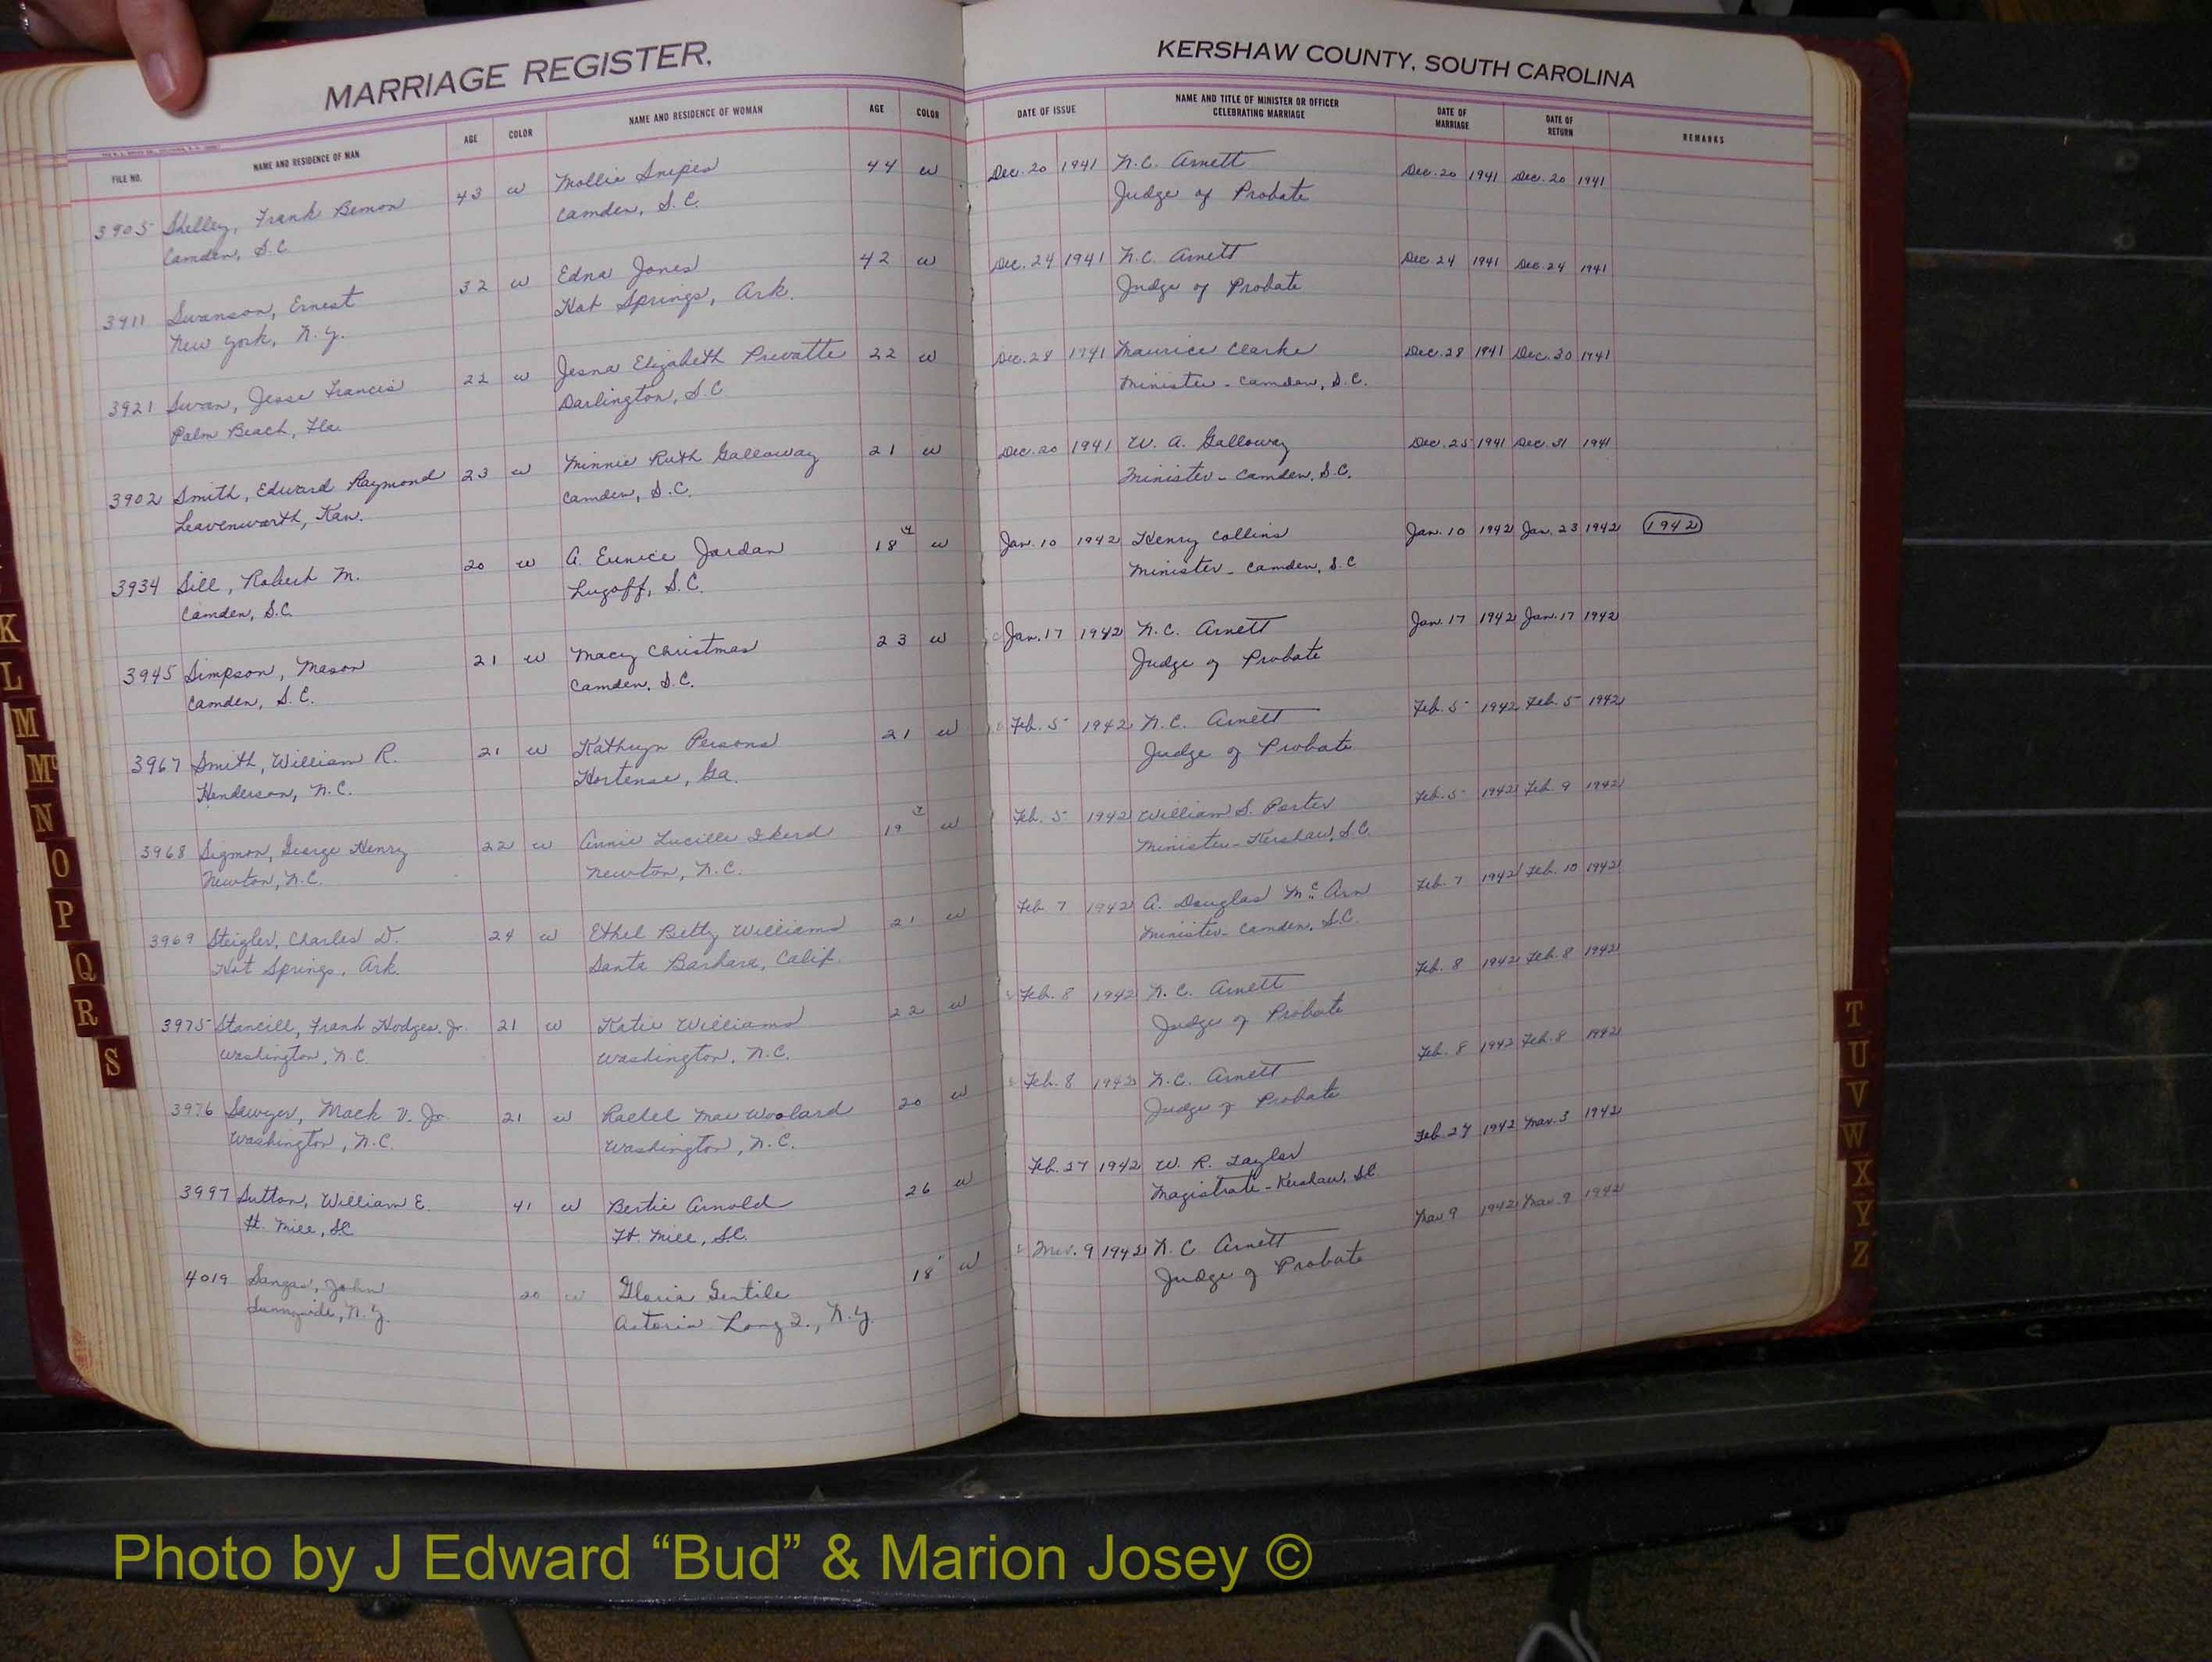 MARRIAGE REGISTER,
KERSHAW COUNTY, SOUTH CAROLINA
FILE NO. NAME AND RESIDENCE OF MAN AGE COLOR NAME AND RESIDENCE OF WOMAN AGE COLOR DATE OF ISSUE NAME AND TITLE OF MINISTER OR OFFICER CELEBRATING MARRIAGE DATE OF MARRIAGE DATE OF RETURN REMARKS
3905 Shelley, Frank Bemon 43 w Mollie Snipes 44 w Dec. 20 1941 N.C. Arnett Dec. 20 1941 Dec. 20 1941
Camden, S.C. Camden, S.C. Judge of Probate
3911 Swanson, Ernest 32 w Edna Jones 42 w Dec. 24 1941 N.C. Arnett Dec 24 1941 Dec 24 1941
New York, N.Y. Hot Springs, Ark. Judge of Probate
3921 Swan, Jesse Francis 22 w Jesna Elizabeth Prevatte 22 w Dec. 28 1941 Maurice Clarke Dec. 28 1941 Dec. 30 1941
Palm Beach, Fla. Darlington, S.C Minister - Camden, S.C.
3902 Smith, Edward Raymond 23 w Minnie Ruth Galloway 21 w Dec. 20 1941 W. A. Galloway Dec. 25 1941 Dec. 31 1941
Leavenworth, Kan. Camden, S.C. Minister - Camden, S.C.
3934 Sill, Robert M. 20 w A. Eunice Jordan 18 w Jan. 10 1942 Henry Collins Jan. 10 1942 Jan. 23 1942 1942
Camden, S.C. Lugoff, S.C. Minister - Camden, S.C
3945 Simpson, Mason 21 w Macy Christmas 23 w Jan. 17 1942 N.C. Arnett Jan. 17 1942 Jan. 17 1942
Camden, S.C. Camden, S.C. Judge of Probate
3967 Smith, William R. 21 w Kathryn Persons 21 w Feb. 5 1942 N.C. Arnett Feb. 5 1942 Feb. 5 1942
Henderson, N.C. Hortense, Ga. Judge of Probate
3968 Sigmon, George Henry 22 w Annie Lucille Ikerd 19 w Feb. 5 1942 William S. Porter Feb. 5 1942 Feb. 9 1942
Newton, N.C. Newton, N.C. Minister - Kershaw, S.C.
3969 Steigler, Charles D. 24 w Ethel Betty Williams 21 w Feb 7 1942 A. Douglas McArn Feb. 7 1942 Feb. 10 1942
Hot Springs, Ark. Santa Barbara, Calif. Minister - Camden, S.C.
3975 Stancill, Frank Hodges, Jr. 21 w Katie Williams 22 w Feb. 8 1942 N.C. Arnett Feb. 8 1942 Feb. 8 1942
Washington, N.C Washington, N.C. Judge of Probate
3976 Sawyer, Mack V. Jr. 21 w Rachel Mae Woolard 20 w Feb. 8 1942 N.C. Arnett Feb. 8 1942 Feb. 8 1942
Washington, N.C. Washington, N.C. Judge of Probate
3997 Sutton, William E. 41 w Bertie Arnold 26 w Feb. 27 1942 W. R. Taylor Feb. 27 1942 Mar. 3 1942
Ft. Mill, S.C Ft. Mill, S.C. Magistrate - Kershaw, S.C.
4019 John 20 w Gloria Gentile 18 w Mar. 9 1942 N.C Arnett Mar 9 1942 Mar. 9 1942
Sunnyside, N.Y. Astoria Long I., N.Y. Judge of Probate
K
L
M
Mc
N
O
P
Q
R
S
T
U
V
W
X
Y
Z
Photo by J Edward “Bud” & Marion Josey ©